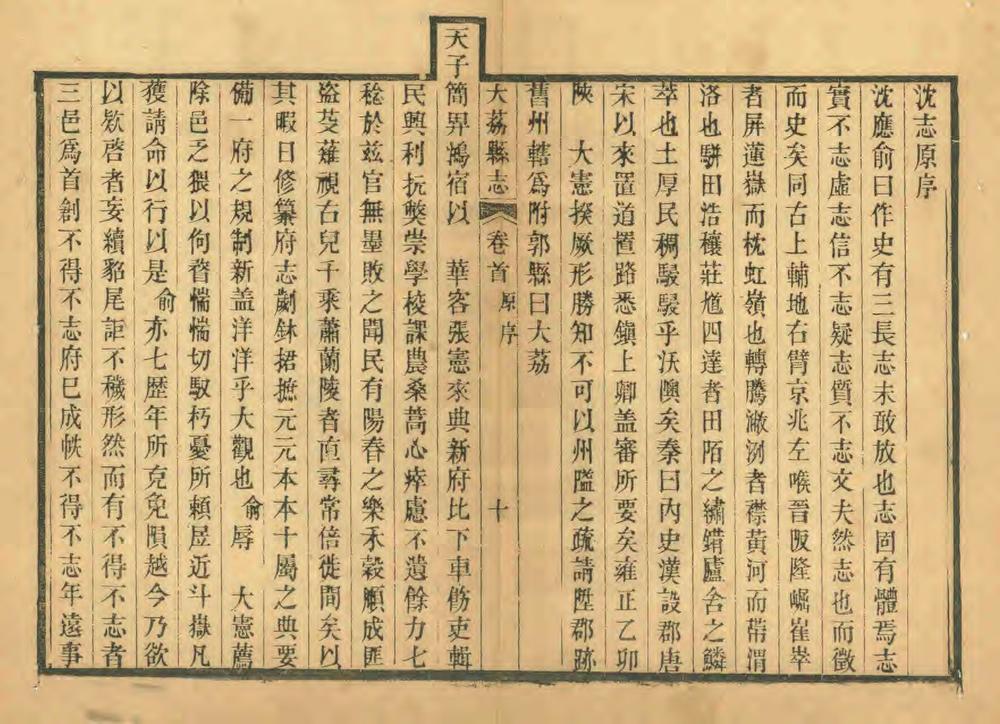 沈志原序
沈應俞曰作史有三長志未敢放也志固有體焉志
實不志虛志信不志疑志質不志文夫然志也而徵
而史矣同右上輔地右臂京兆左喉晉阪隆崛崔崒
者屏蓮嶽而枕虹嶺也轉騰潎洌者襟黃河而帶渭
洛也駢田浩穰莊馗四達者田陌之繡錯廬舍之鱗
萃也土厚民稠駸駸乎沃隩矣秦曰內史漢設郡唐
宋以來置道置路悉鎭上卿盖審所要矣雍正乙卯
陜 大憲揆厥形勝知不可以州隘之疏請陞郡跡
舊州轄爲附郭縣曰大荔
大荔縣志 卷首 原序 十
天子簡畀鴻宿以 華客張憲來典新府比下車飭吏輯
民興利抏獘崇學校課農桑蒿心瘁慮不遺餘力七
稔於兹官無墨敗之聞民有陽春之樂禾穀順成匪
盜芟薙視右兒千乘蕭蘭陵者直尋常倍徙間矣以
其暇日修纂府志劌鉥捃摭元元本本十屬之典要
備一府之規制新盖洋洋乎大觀也俞辱 大憲薦
除邑乏猥以佝瞀惴惴切馭朽憂所賴昃近斗嶽凡
獲請命以行以是俞亦七歷年所克免隕越今乃欲
以欵啓者妄續貂尾詎不穢形然而有不得不志者
三邑爲首創不得不志府已成帙不得不志年遠事